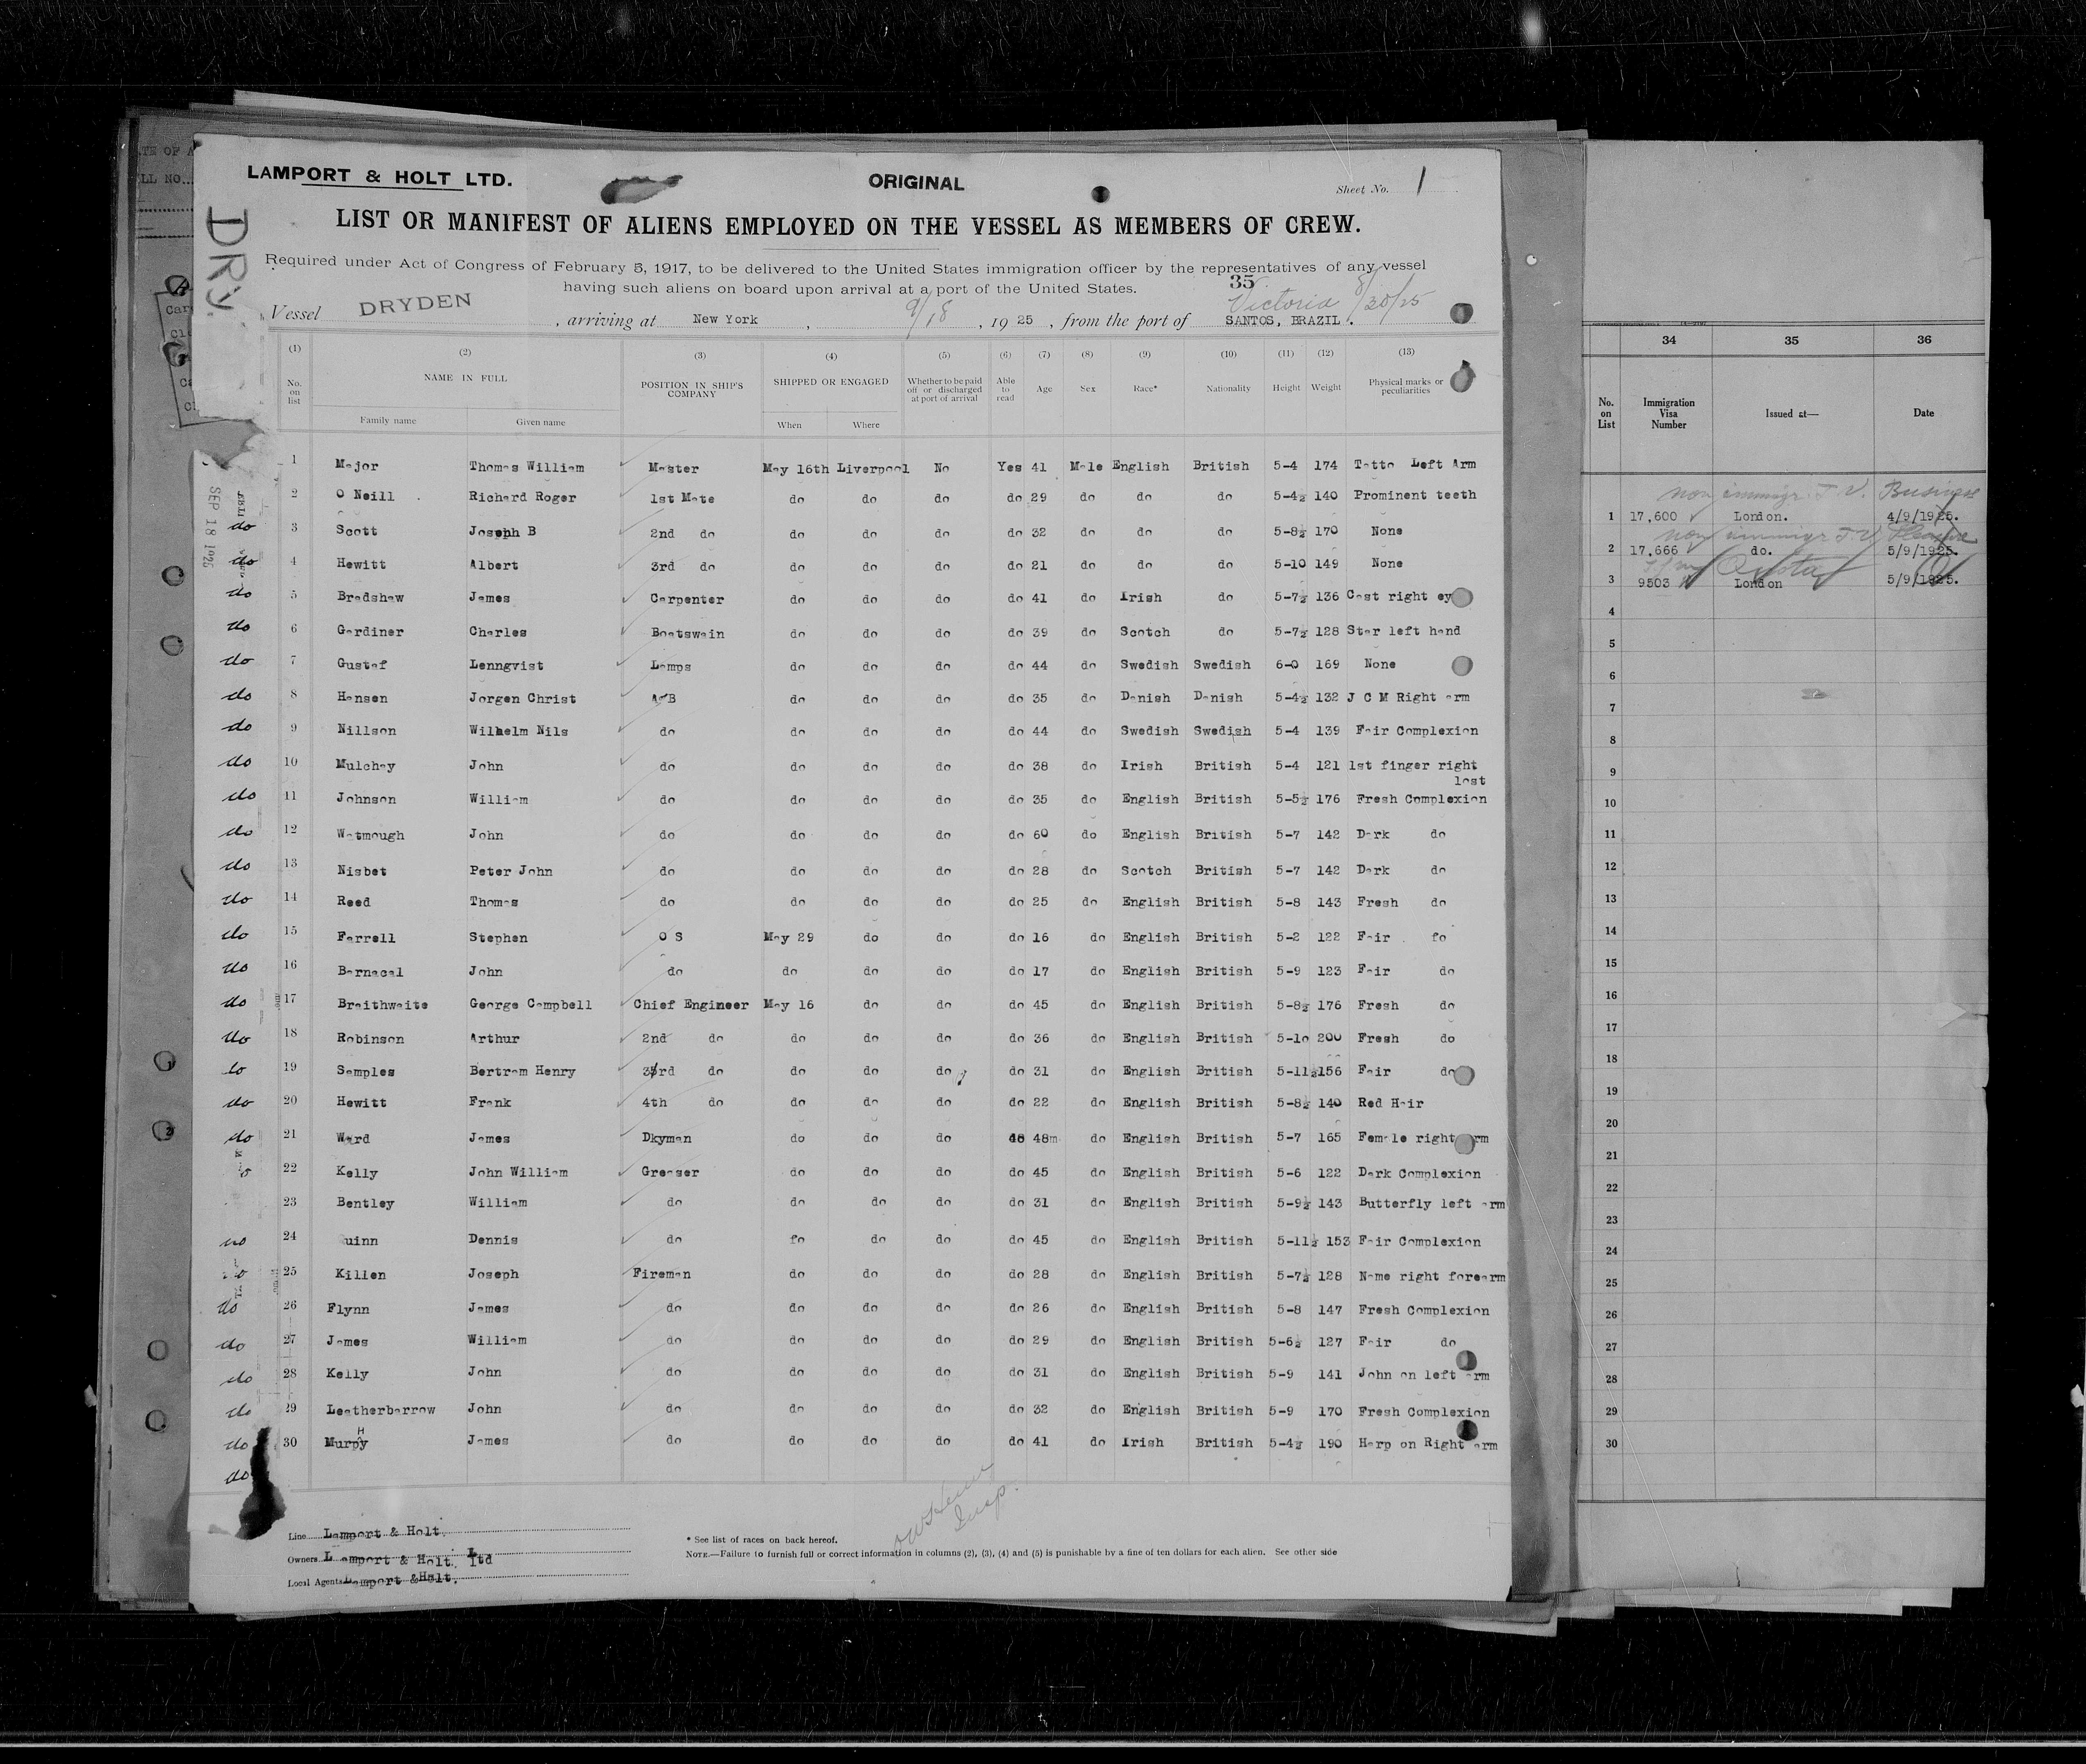 LAMPORT & HOLT LTD.
ORIGINAL
Sheet No. 1
LIST OR MANIFEST OF ALIENS EMPLOYED ON THE VESSEL AS MEMBERS OF CREW.
Required under Act of Congress of February 5, 1917, to be delivered to the United States immigration officer by the representatives of any vessel
having such aliens on board upon arrival at a port of the United States.
35
Victoria 8/30/25
Vessel DRYDEN, arriving at New York, 9/18, 1925, from the port of SANTOS, BRAZIL.
DRY.
SEP 18 1925
(1) (2) (3) (4) (5) (6) (7) (8) (9) (10) (11) (12) (13)
No. on list NAME IN FULL POSITION IN SHIP'S COMPANY SHIPPED OR ENGAGED Whether to be paid off or discharged at port of arrival Able to read Age Sex Race* Nationality Height Weight Physical marks or peculiarities
Family name Given name When Where
1 Major Thomas William Master May 16th Liverpool No Yes 41 Male English British 5-4 174 Tatto Left Arm
2 O Neill Richard Roger 1st Mate do do do do 29 do do do 5-4½ 140 Prominent teeth
do 3 Scott Joseph B 2nd do do do do do 32 do do do 5-8½ 170 None
do 4 Hewitt Albert 3rd do do do do do 21 do do do 5-10 149 None
do 5 Bradshaw James Carpenter do do do do 41 do Irish do 5-7½ 136 Cast right ey
do 6 Gardiner Charles Boatswain do do do do 39 do Scotch do 5-7½ 128 Star left hand
do 7 Gustaf Lenngvist Lamps do do do do 44 do Swedish Swedish 6-0 169 None
do 8 Hansen Jorgen Christ A B do do do do 35 do Danish Danish 5-4½ 132 J C M Right arm
do 9 Nillson Wilhelm Nils do do do do do 44 do Swedish Swedish 5-4 139 Fair Complexion
do 10 Mulchay John do do do do do 38 do Irish British 5-4 121 1st finger right
lost
do 11 Johnson William do do do do do 35 do English British 5-5½ 176 Fresh Complexion
do 12 Watmough John do do do do do 60 do English British 5-7 142 Dark do
do 13 Nisbet Peter John do do do do do 28 do Scotch British 5-7 142 Dark do
do 14 Reed Thomas do do do do do 25 do English British 5-8 143 Fresh do
do 15 Farrell Stephen O S May 29 do do do 16 do English British 5-2 122 Fair fo
do 16 Barnacal John do do do do do 17 do English British 5-9 123 Fair do
do 17 Braithwaite George Campbell Chief Engineer May 16 do do do 45 do English British 5-8½ 176 Fresh do
do 18 Robinson Arthur 2nd do do do do do 36 do English British 5-10 200 Fresh do
do 19 Samples Bertram Henry 3rd do do do do do 31 do English British 5-11½ 156 Fair do
do 20 Hewitt Frank 4th do do do do do 22 do English British 5-8½ 140 Red Hair
do 21 Ward James Dkyman do do do 48m do English British 5-7 165 Female right rm
22 Kelly John William Greaser do do do do 45 do English British 5-6 122 Dark Complexion
23 Bentley William do do do do do 31 do English British 5-9½ 143 Butterfly left arm
do 24 uinn Dennis do fo do do do 45 do English British 5-11½ 153 Fair Complexion
25 Killen Joseph Fireman do do do do 28 do English British 5-7½ 128 Name right forearm
do 26 Flynn James do do do do do 26 do English British 5-8 147 Fresh Complexion
do 27 James William do do do do do 29 do English British 5-6½ 127 Fair do
do 28 Kelly John do do do do do 31 do English British 5-9 141 John on left arm
do 29 Leatherbarrow John do do do do do 32 do English British 5-9 170 Fresh Complexion
do 30 MurpHy James do do do do do 41 do Irish British 5-4½ 190 Harp on Right arm
do
Insp.
Line Lamport & Holt.
Owners Lamport & Holt. Ltd
Local Agents Lamport & Holt.
* See list of races on back hereof.
NOTE.—Failure to furnish full or correct information in columns (2), (3), (4) and (5) is punishable by a fine of ten dollars for each alien. See other side
34 35 36
No. on List Immigration Visa Number Issued at— Date
non immigr T.V. Business
1 17,600 London. 4/9/1925.
non immigr T.V. Pleasure
2 17,666 do. 5/9/1925.
Quota
3 9503 London 5/9/1925.
4
5
6
7
8
9
10
11
12
13
14
15
16
17
18
19
20
21
22
23
24
25
26
27
28
29
30